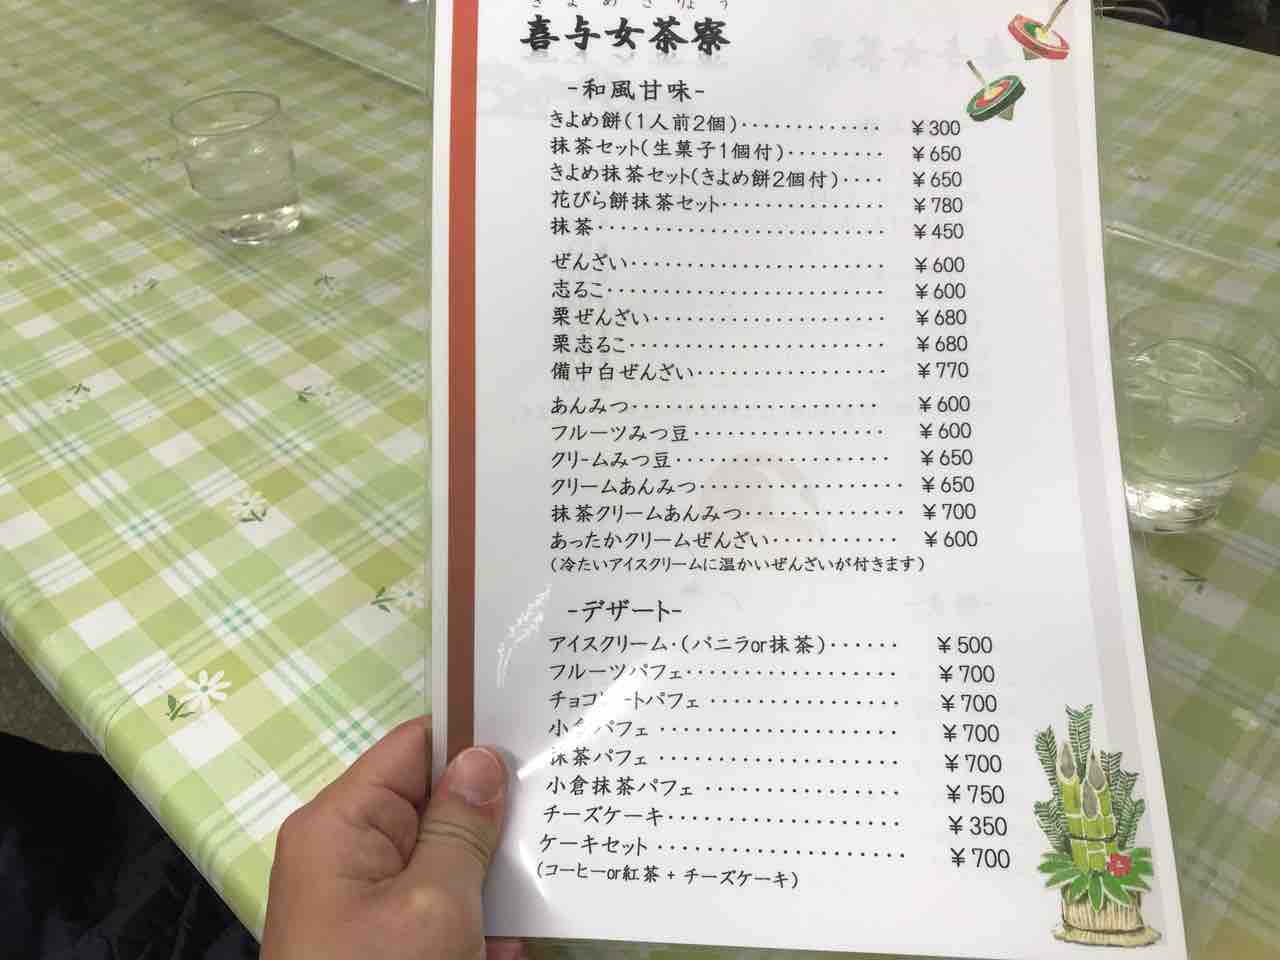 きよめさりょう
喜与女茶寮
-和風甘味-
きよめ餅(1人前2個)············· ¥300
抹茶セット(生菓子1個付)········· ¥650
きよめ抹茶セット(きよめ餅2個付)···· ¥650
花びら餅抹茶セット··············· ¥780
抹茶·························· ¥450
ぜんざい······················· ¥600
志るこ························· ¥600
栗ぜんざい····················· ¥680
栗志るこ······················· ¥680
備中白ぜんざい················· ¥770
あんみつ······················ ¥600
フルーツみつ豆················· ¥600
クリームみつ豆··················· ¥650
クリームあんみつ··················· ¥650
抹茶クリームあんみつ·············· ¥700
あったかクリームぜんざい············ ¥600
(冷たいアイスクリームに温かいぜんざいが付きます)
-デザート-
アイスクリーム·(バニラor抹茶)······ ¥500
フルーツパフェ················· ¥700
チョコレートパフェ ··············· ¥700
小倉パフェ ··················· ¥700
抹茶パフェ ··················· ¥700
小倉抹茶パフェ ··············· ¥750
チーズケーキ··················· ¥350
ケーキセット ··················· ¥700
(コーヒーor紅茶 + チーズケーキ)